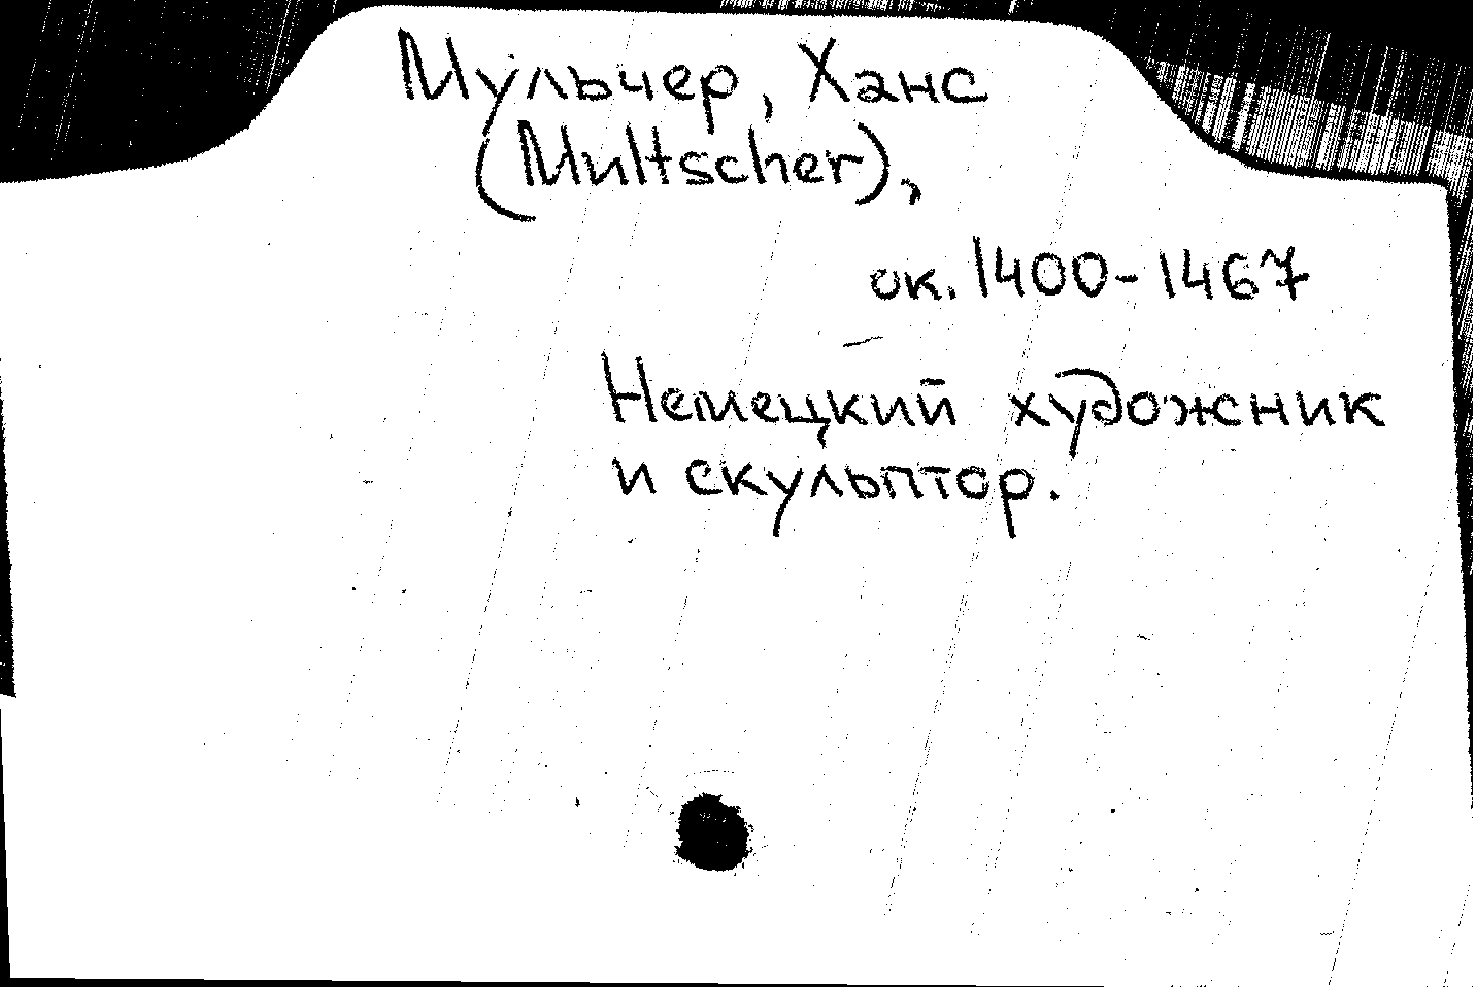 Мульчер, Ханс
(Multscher),
ок. 1400-1467
Немецкий художник
и скульптор.